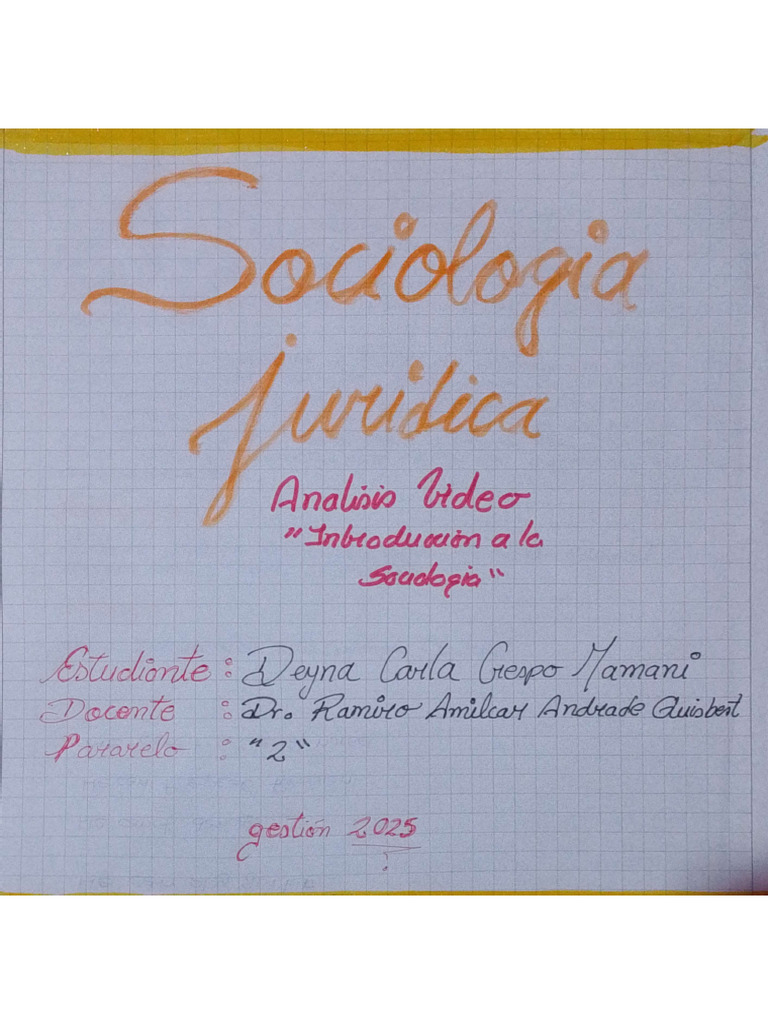 Sociologia
juridica
Analisis Video
"Introducción a la
Sociologia"
Estudiante : Deyna Carla Crespo Mamani
Docente : Dr. Ramiro Amilcar Andrade Quisbert
Pararelo : "2"
gestión 2025